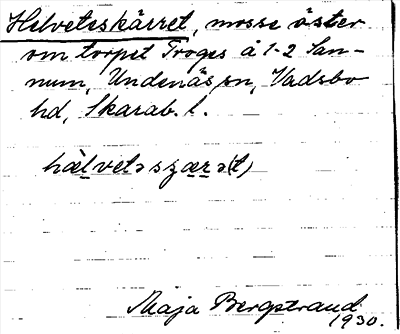 Helveteskärret, mosse öster
om torpet Troges å 1-2 San-
num, Undenäs sn, Vadsbo
hd, Skarab. l.
Maja Bergstrand
1930.